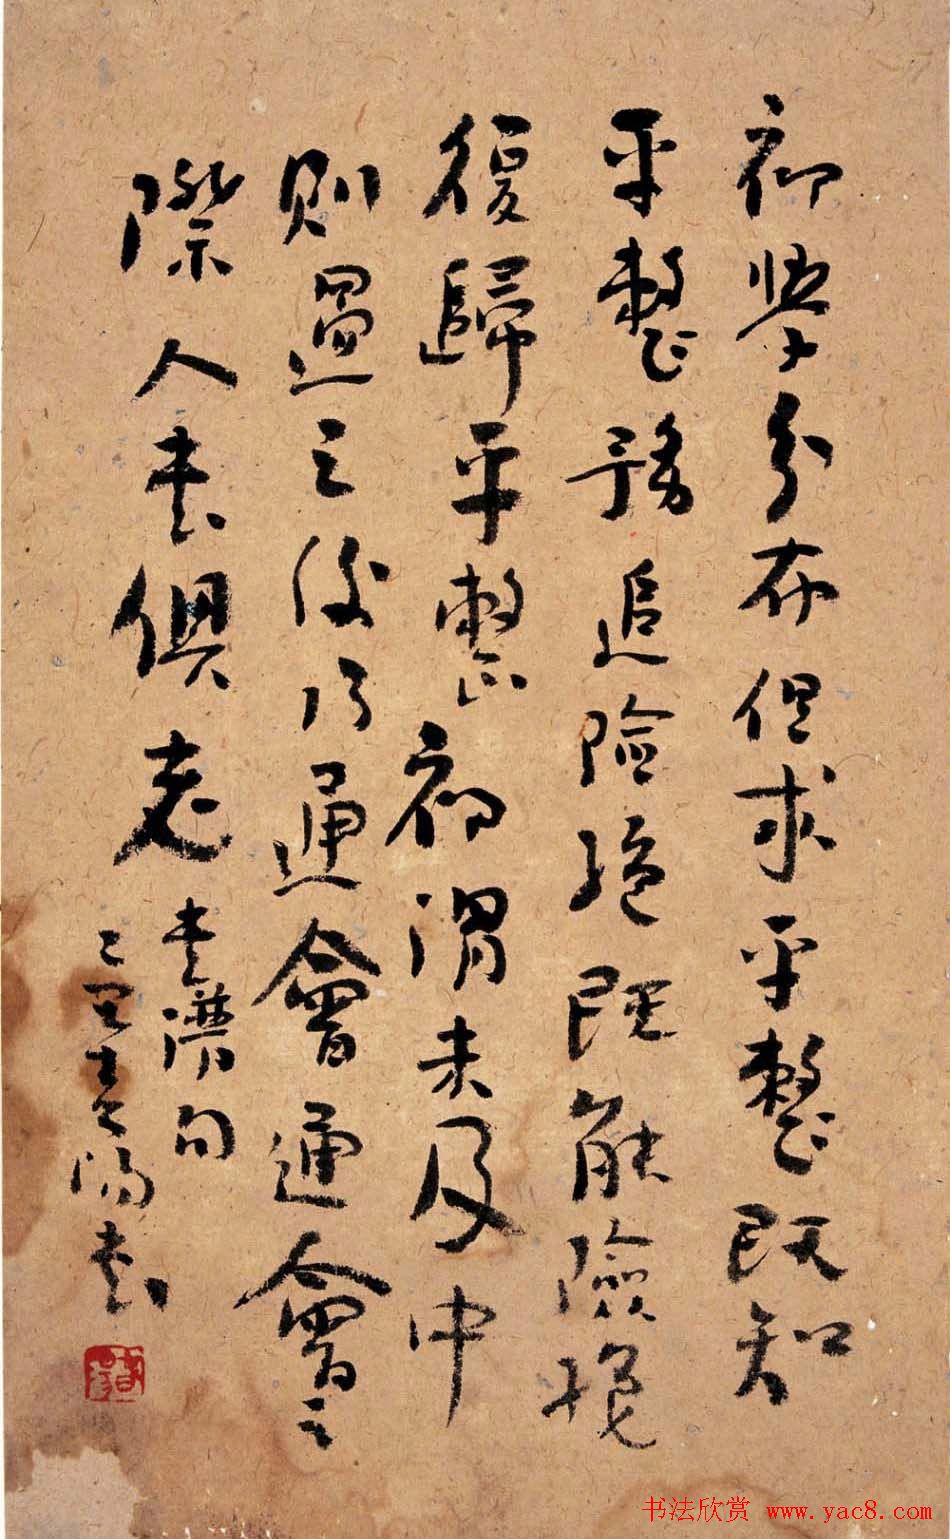 初學分布但求平整既知
平整務追險絕既能險絕
復歸平整初謂未及中
則過之後乃通會通會之
際人書俱老
書譜句
書
书法欣赏 www.yac8.com